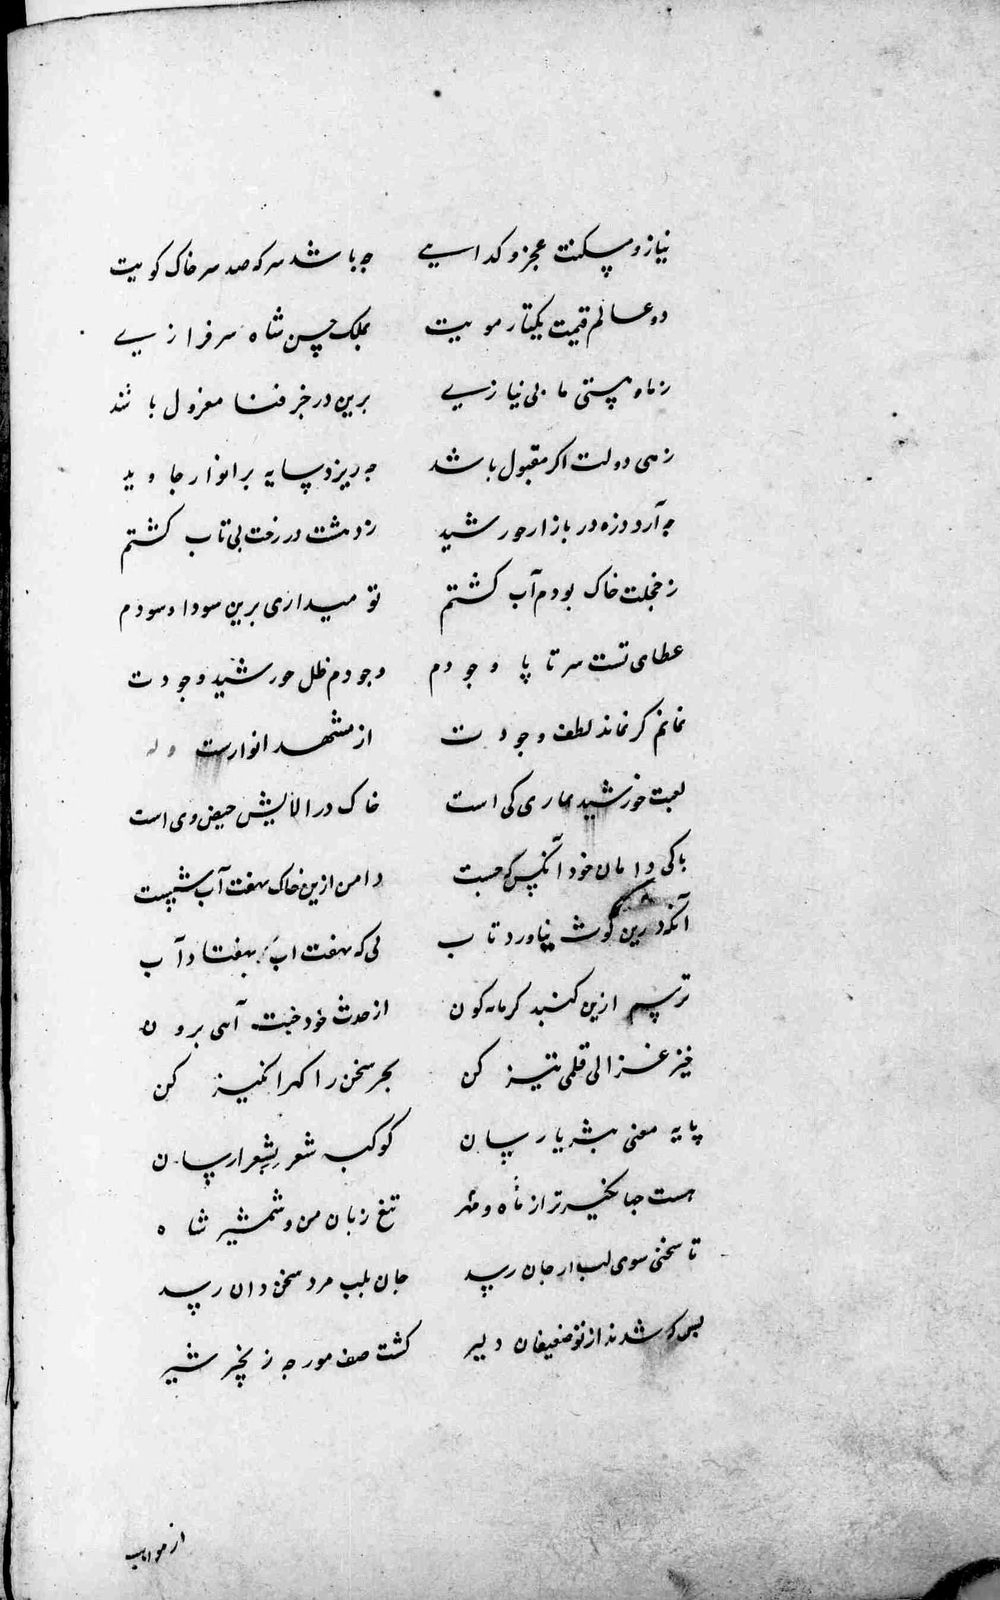 نیاز و مسکنت عجز و کدایی چه باشد سر که صد سر خاک کویت
دو عالم قیمت یکتار مویت بملک حسن شاه سرفرازی
ز ما و هستی ما بی نیازی برین در جز فنا معزول باشد
زهی دولت اکر مقبول باشد چه ریزد سایه بر انوار جاوید
چه آرد ذره در بازار خورشید ز دهشت در رخت بی تاب کشتم
ز خجلت خاک بودم آب کشتم تو میداری برین سودا و سودم
عطای تست سر تا پا وجودم وجودم ظل خورشید وجودت
نمانم کر نماند لطف وجودت از مشهد انوارست وله
لعبت خورشید عماری کی است خاک در الایش حیض وی است
پاکی دامان خود آنکس که جست دامن ازین خاک بهفت آب شست
آنکه درین کوشه نیاورد تاب کی که بهفت آب بهفتاد آب
ترسم ازین کنبد کرمابه کون از حدث خود جنب آیی برون
خیز غزالی قلمی تیز کن بحر سخن را کهر انکیز کن
پایه معنی بثریا رسان کوکبه شعر بشعرا رسان
هست جهانکیرتر از ماه و مهر تیغ زبان من و شمشیر شاه
تا سخنی سوی لب از جان رسد جان بلب مرد سخن دان رسد
بس که شدند از تو ضعیفان دلیر کشت صف مورچه زنجیر شیر
از مواهب